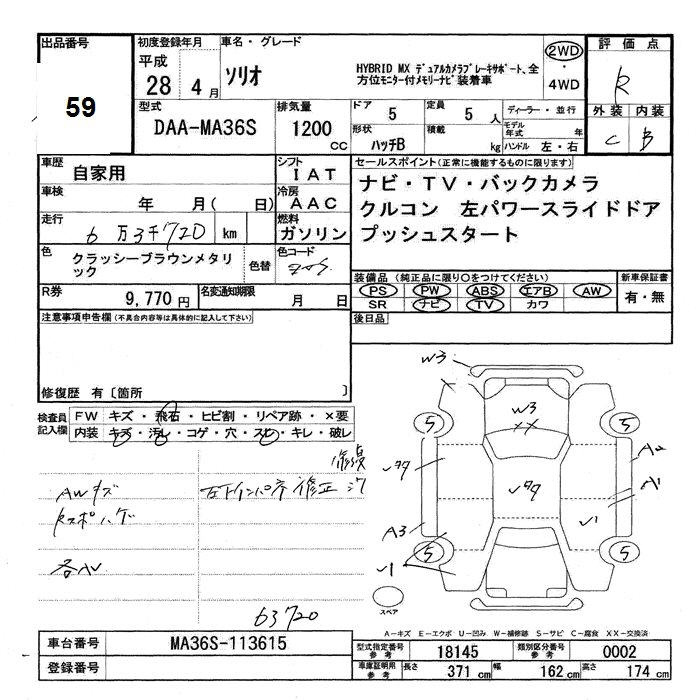 出品番号
59
初度登録年月
平成
28 4 月
車名・グレード
ソリオ
HYBRID MX デュアルカメラブレーキサポート、全
方位モニター付メモリーナビ装着車
2WD
・
4WD
評価点
R
外装 内装
C B
型式
DAA-MA36S
排気量
1200
CC
ドア 5
定員 5 人
形状 ハッチB
積載 kg
ディーラー・並行
モデル年式 年
ハンドル 左・右
車歴 自家用
シフト
IAT
車検 年 月( 日)
冷房
AAC
走行 6 万 3千720 km
燃料
ガソリン
色 クラッシーブラウンメタリ
ック
色替
色コード
R券 9,770 円
名変通知期限 月 日
セールスポイント(正常に機能するものに限ります)
ナビ・TV・バックカメラ
クルコン 左パワースライドドア
プッシュスタート
装備品 (純正品に限り〇をつけてください)
PS PW ABS エアB AW
SR ナビ TV カワ
新車保証書
有・無
後日品
注意事項申告欄(不具合内容等は具体的に記入して下さい)
修復歴 有〔箇所 〕
検査員
記入欄
FW キズ・飛石・ヒビ割・リペア跡・×要
内装 キズ・汚れ・コゲ・穴・スレ・キレ・破レ
AWキズ
各AU
修正
63720
W3
W3
XX
5
5
5
5
A2
A1
A3
√1
√1
スペア
A−キズ E−エクボ U−凹み W−補修跡 S−サビ C−腐食 XX−交換済
車台番号 MA36S-113615
登録番号
型式指定番号
参考
18145
類別区分番号
参考
0002
車庫証明用
参考
長さ 371 cm 幅 162 cm 高さ 174 cm